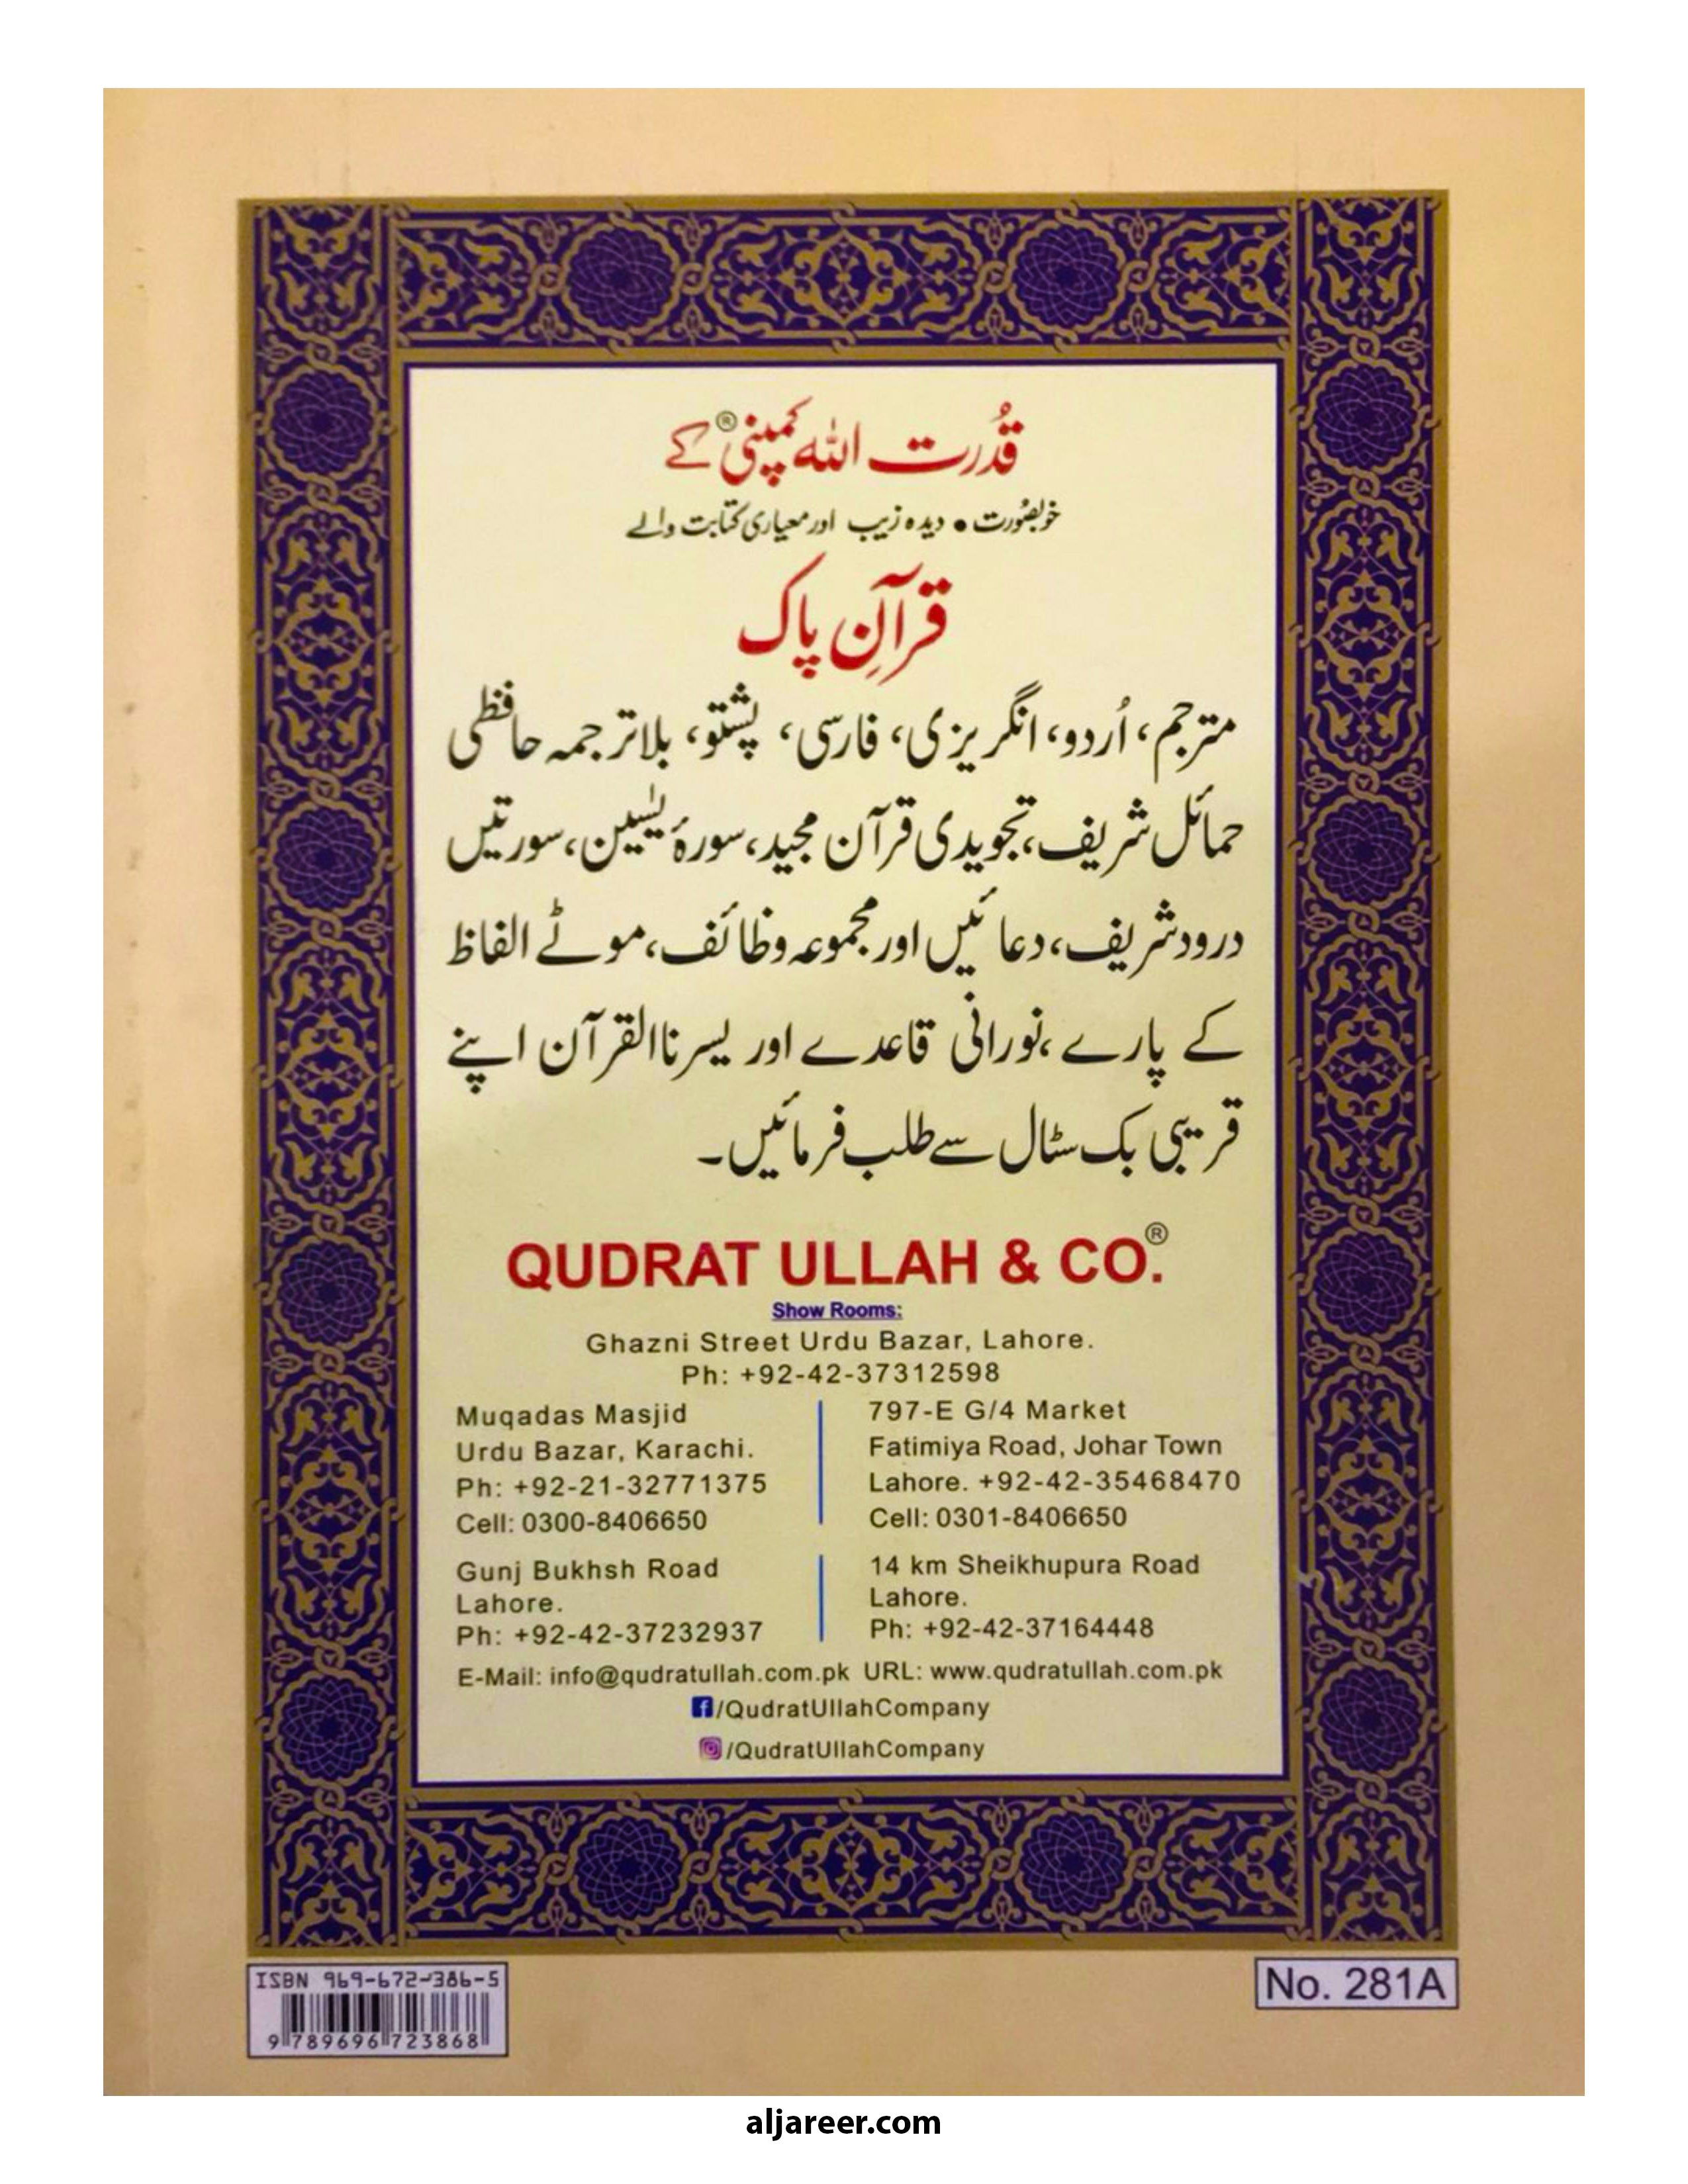 قُدرت اللہ کمپنی® کے
خوبصُورت • دیدہ زیب اور معیاری کتابت والے
قرآنِ پاک
مترجم، اُردو، انگریزی، فارسی، پشتو، بلاترجمہ حافظی
حمائل شریف، تجویدی قرآن مجید، سورۂ یٰسین، سورتیں
درود شریف، دعائیں اور مجموعہ وظائف، موٹے الفاظ
کے پارے، نورانی قاعدے اور یسرناالقرآن اپنے
قریبی بک سٹال سے طلب فرمائیں۔
QUDRAT ULLAH & CO.®
Show Rooms:
Ghazni Street Urdu Bazar, Lahore.
Ph: +92-42-37312598
Muqadas Masjid
Urdu Bazar, Karachi.
Ph: +92-21-32771375
Cell: 0300-8406650
797-E G/4 Market
Fatimiya Road, Johar Town
Lahore. +92-42-35468470
Cell: 0301-8406650
Gunj Bukhsh Road
Lahore.
Ph: +92-42-37232937
14 km Sheikhupura Road
Lahore.
Ph: +92-42-37164448
E-Mail: info@qudratullah.com.pk URL: www.qudratullah.com.pk
/QudratUllahCompany
/QudratUllahCompany
ISBN 969-672-386-5
9 789696 723868
No. 281A
aljareer.com